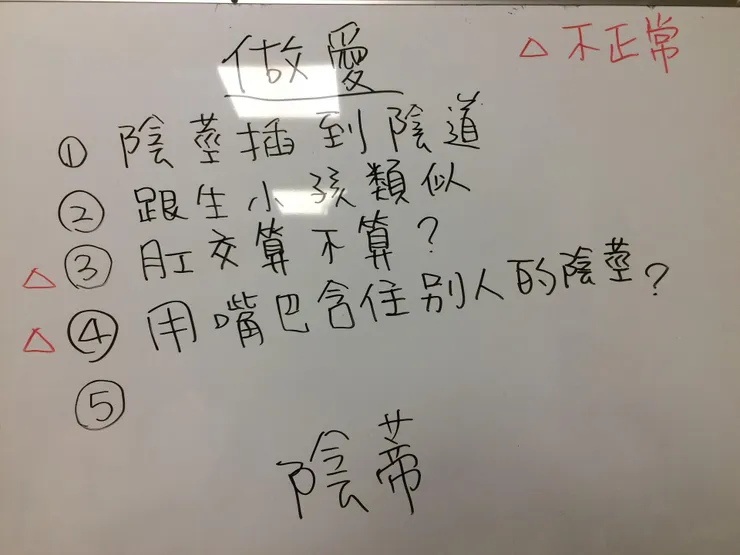 做愛
△ 不正常
① 陰莖插到陰道
② 跟生小孩類似
△ ③ 肛交算不算?
△ ④ 用嘴巴含住別人的陰莖?
⑤
陰蒂